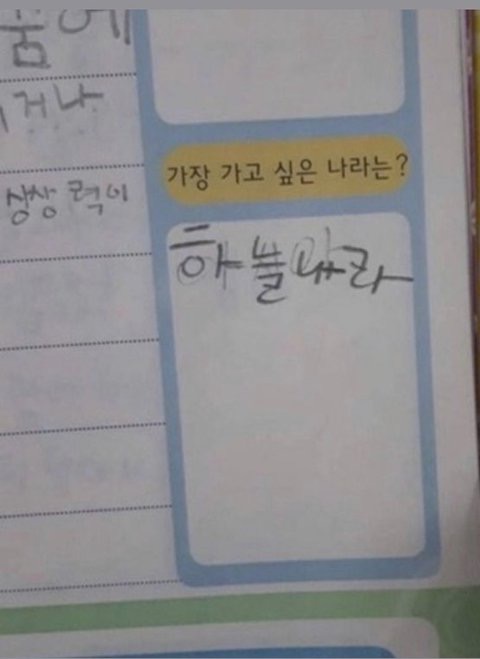 품에
거나
상상력이
가장 가고 싶은 나라는?
하늘나라